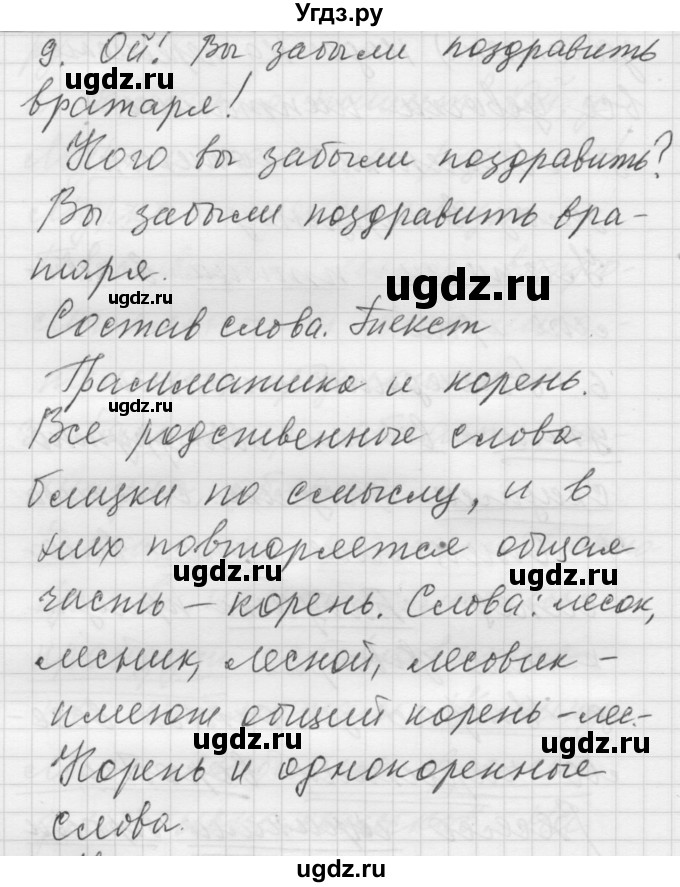 Угдз.ру
9. Ой! Вы забыли поздравить
ugdz.ru
вратаря!
ugdz.ru
Кого вы забыли поздравить?
Вы забыли поздравить вра-
таря.
ugdz.ru
ugdz.ru
Состав слова. Текст
Грамматика и корень.
ugdz.ru
Все родственные слова
близки по смыслу, и в
них повторяется общая
ugdz.ru
ugdz.ru
часть – корень. Слова: лесок,
лесник, лесной, лесовик –
имеют общий корень -лес-
ugdz.ru
ugdz.ru
Корень и однокоренные
слова.
ugdz.ru